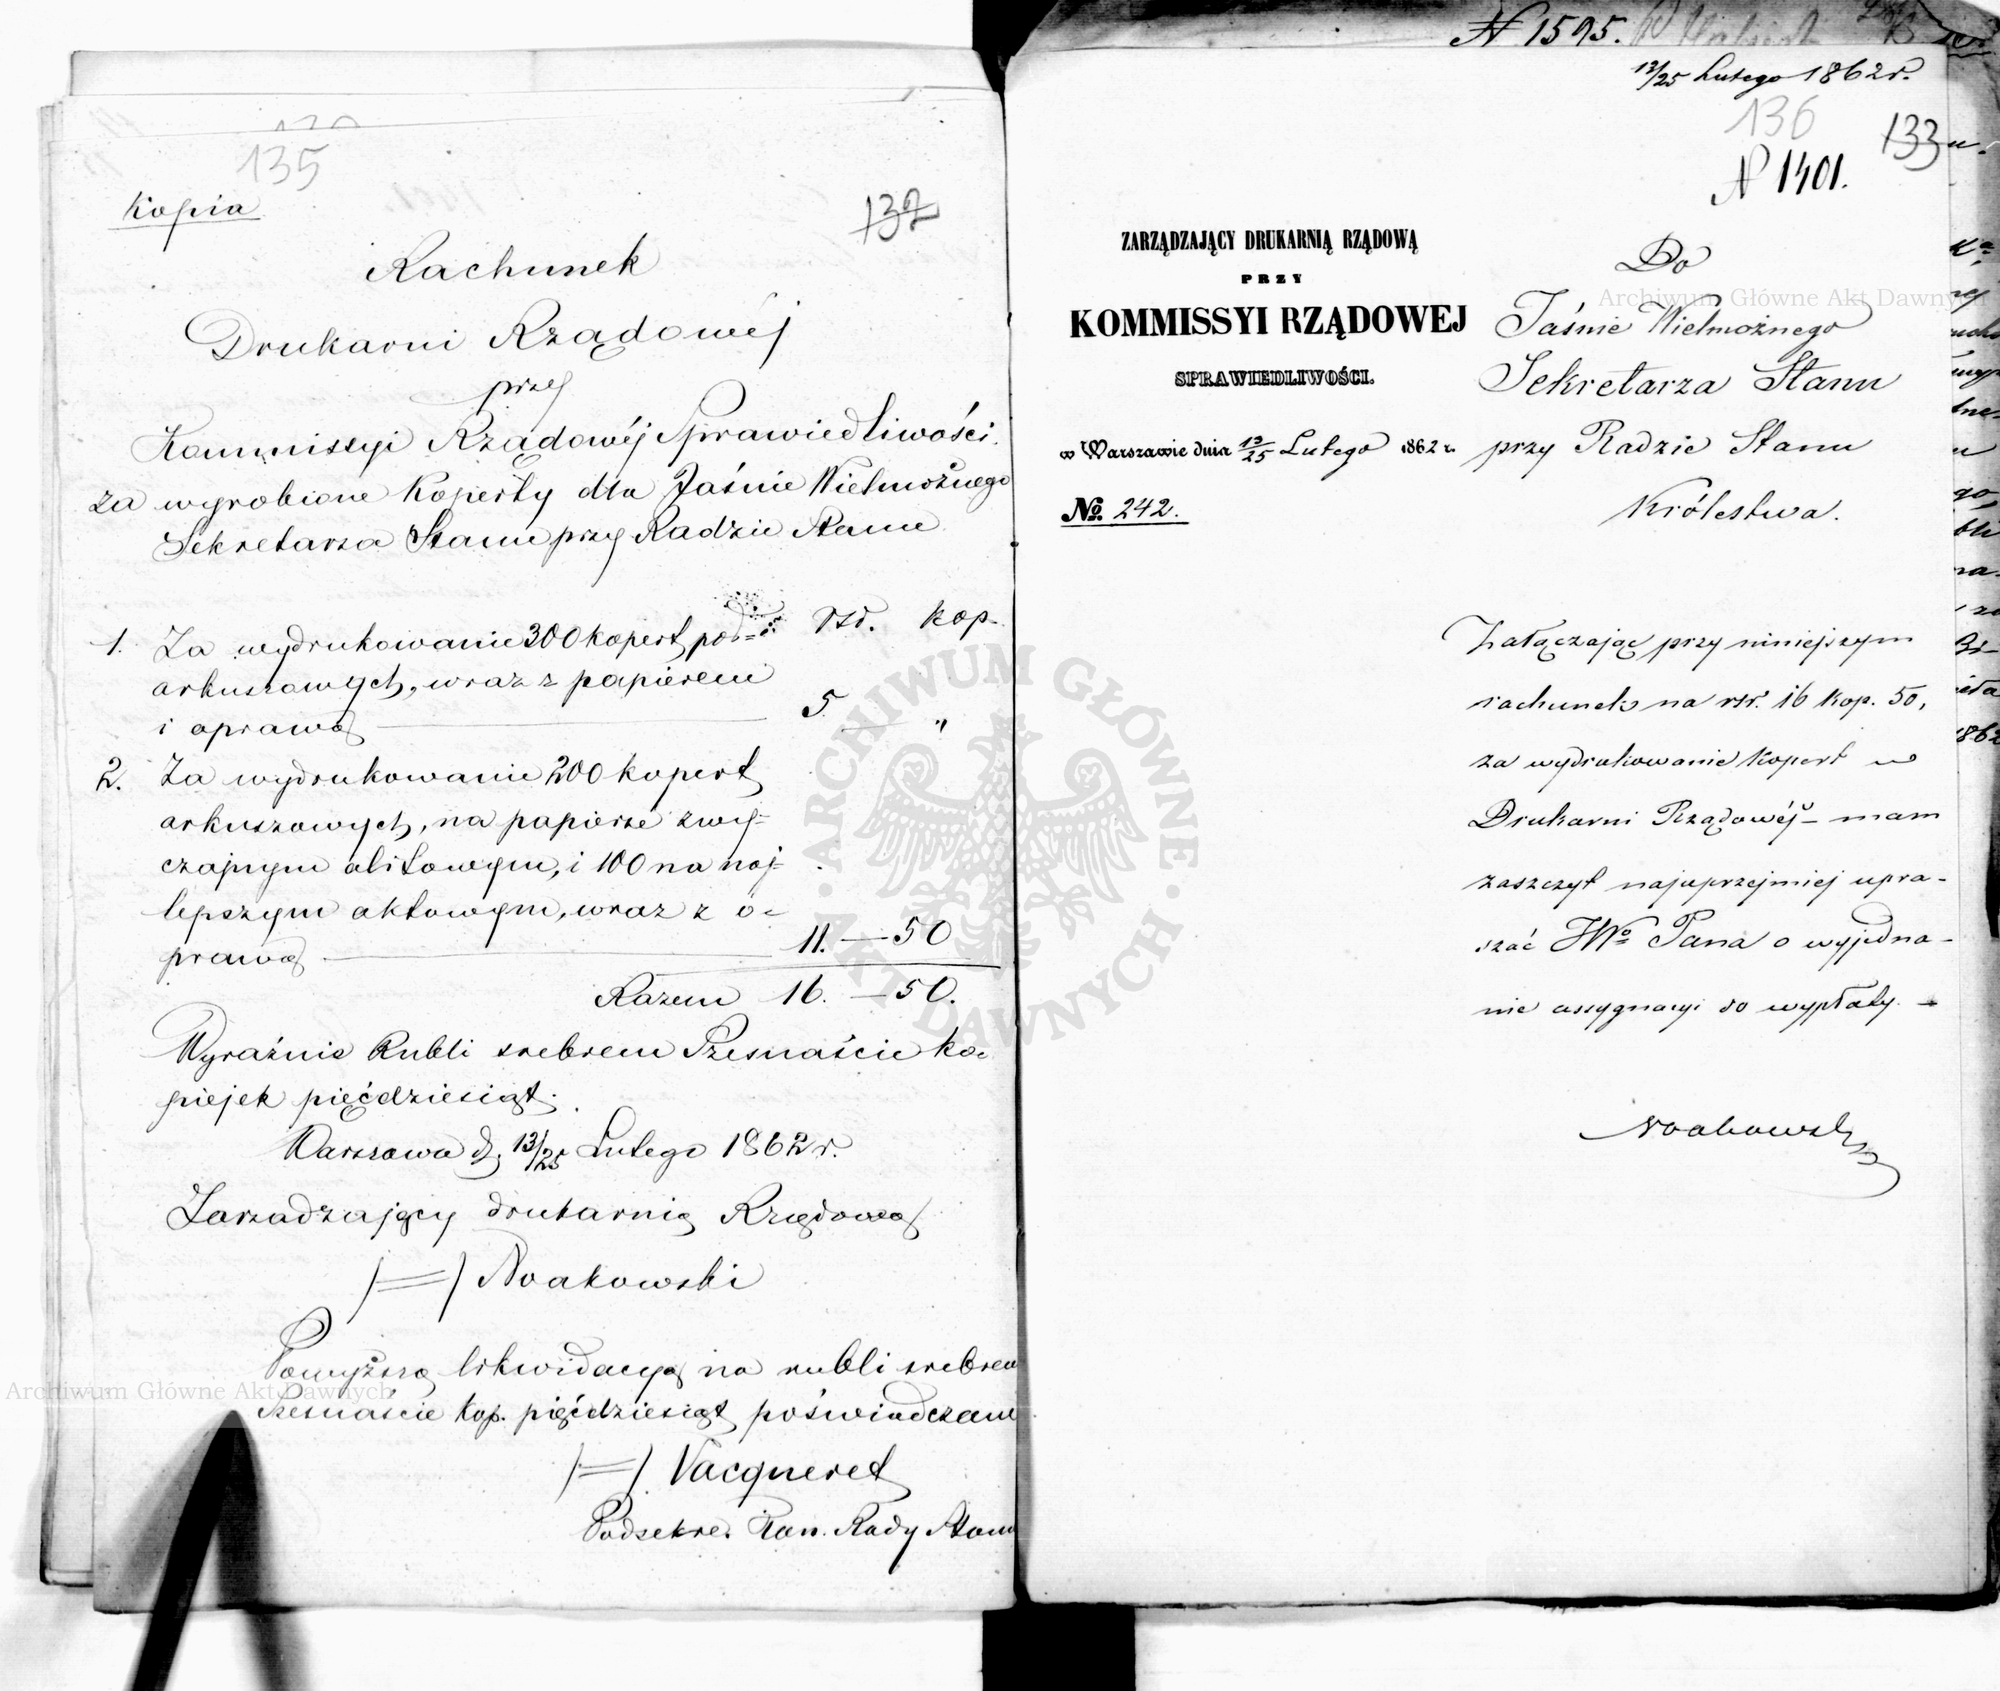 135
Kopia
132
Rachunek
Drukarni Rządowéj
przy
Kommissyi Rządowéj Sprawiedliwości.
za wyrobione Koperty dla Jaśnie Wielmożnego
Sekretarza Stanu przy Radzie Stanu
rsr. kop.
1. Za wydrukowanie 300 kopert pod=
arkuszowych, wraz z papierem
i oprawą 5. "
2. Za wydrukowanie 200 kopert
arkuszowych, na papierze zwy=
czajnym aktowym, i 100 na naj=
lepszym aktowym, wraz z o=
prawą 11. — 50
Razem 16. — 50.
Wyraźnie Rubli srebrem Szesnaście ko=
piejek pięćdziesiąt.
Warszawa d. 13/25 Lutego 1862 r.
Zarządzający drukarnią Rządową
/=/ Noakowski
Powyższą likwidacyą na rubli srebrem
Szesnaście kop. pięćdziesiąt poświadczam
/=/ Vacqueret
Podsekre. Stan. Rady Stanu
N 1595.
13/25 Lutego 1862 r.
136
133
N 1401.
ZARZĄDZAJĄCY DRUKARNIĄ RZĄDOWĄ
PRZY
KOMMISSYI RZĄDOWEJ
SPRAWIEDLIWOŚCI.
w Warszawie dnia 13/25 Lutego 1862 r.
No. 242.
Do
Jaśnie Wielmożnego
Sekretarza Stanu
przy Radzie Stanu
Królestwa.
Załączając przy niniejszym
rachunek na rsr. 16 kop. 50,
za wydrukowanie kopert w
Drukarni Rządowéj — mam
zaszczyt najuprzejmiej upra-
szać JWo Pana o wyjedna-
nie assygnacyi do wypłaty. —
Noakowski
Archiwum Główne Akt Dawnych
Archiwum Główne Akt Dawnych
ARCHIWUM GŁÓWNE AKT DAWNYCH